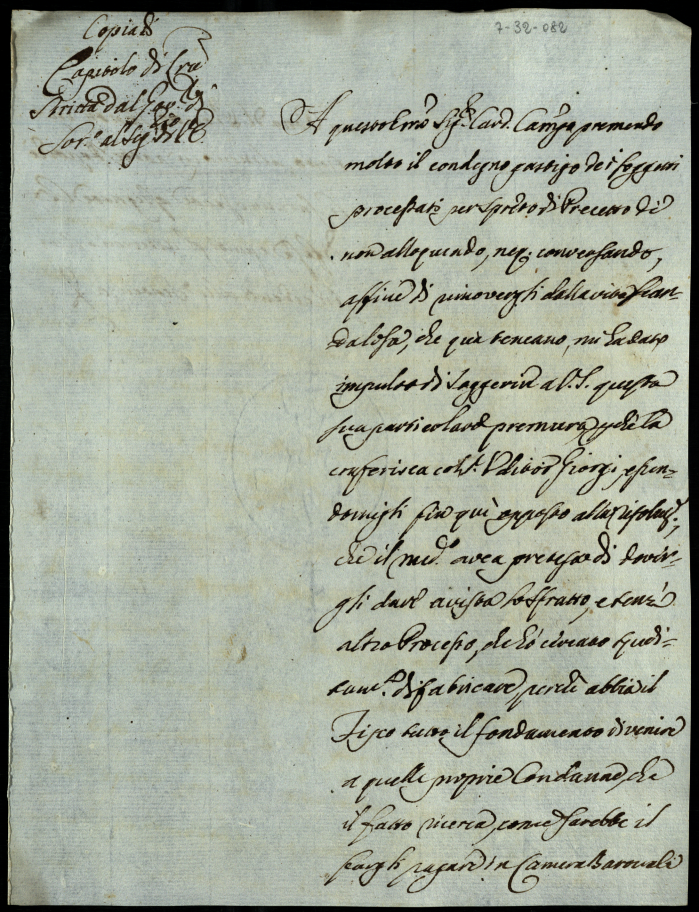 7-32-082
Copia di
Capitolo di
al Sig.
A questo Em.o Sig.r Card. Campa premendo
molto il condegno gastigo dei soggetti
processati per spreto di Precetto di
non alloquendo, neq; conversando,
affine di rimovergli dalla vita scan-
dalosa, che qui teneano, mi ha dato
impulso di suggerire a V.S. questa
sua particolare premura, perché la
conferisca col S. Uditor Giorgi, essen-
domigli fin qui opposto alla risoluz.e,
che il med.o avea preteso di dover-
gli dare a vista lo sfratto, e senz'
altro Processo, che ho cercato spedi-
tam.e di fabricare, perche abbia il
Fisco tutto il fondamento di venire
a quelle proprie Condanne, che
il fatto ricerca, come sarebbe il
fargli pagare in Camera Baronale